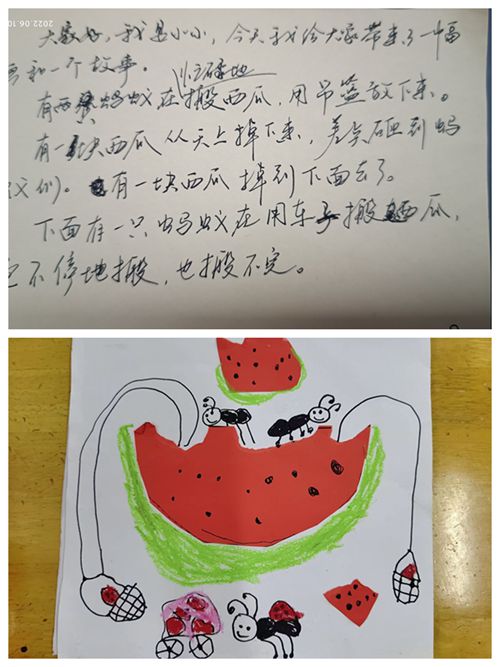 2022.06.10
大家好,我是小小,今天我给大家带来了一幅
画和一个故事。
忙碌地
有两只蚂蚁在搬西瓜,用吊篮放下来。
有一块西瓜从天上掉下来,差点砸到蚂
蚁们。有一块西瓜掉到下面去了。
下面有一只蚂蚁在用车子搬西瓜,
它不停地搬,也搬不完。